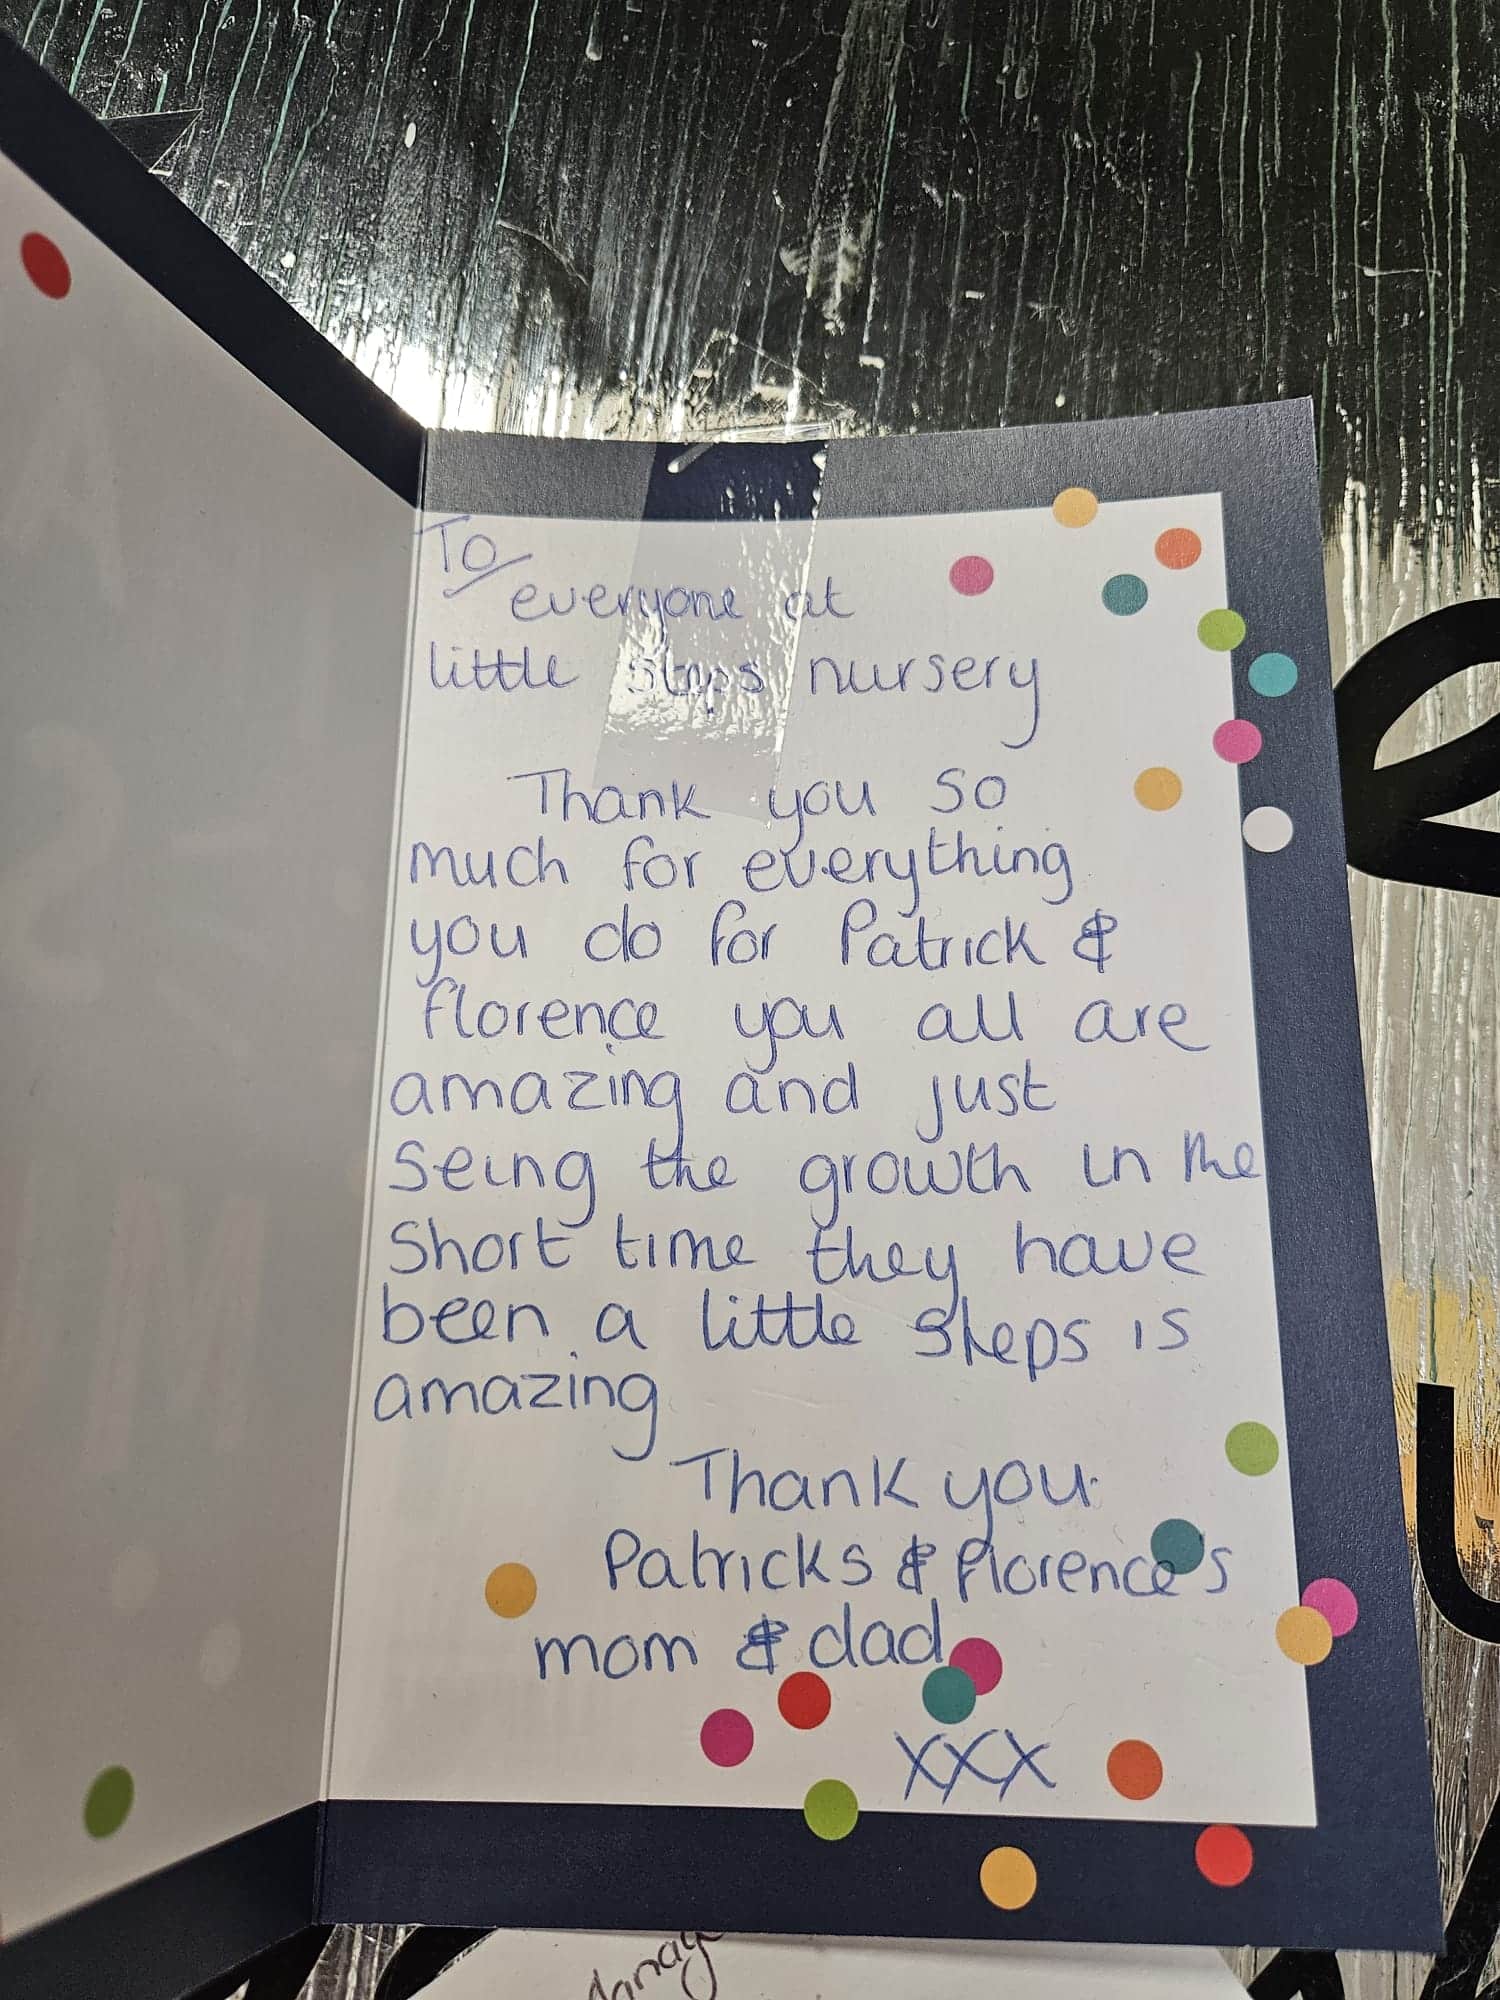 To
everyone at
little steps nursery
Thank you so
much for everything
you do for Patrick &
florence you all are
amazing and just
seing the growth in the
short time they have
been a little steps is
amazing
Thank you.
Patricks & florence's
mom & dad
xxx
e
u